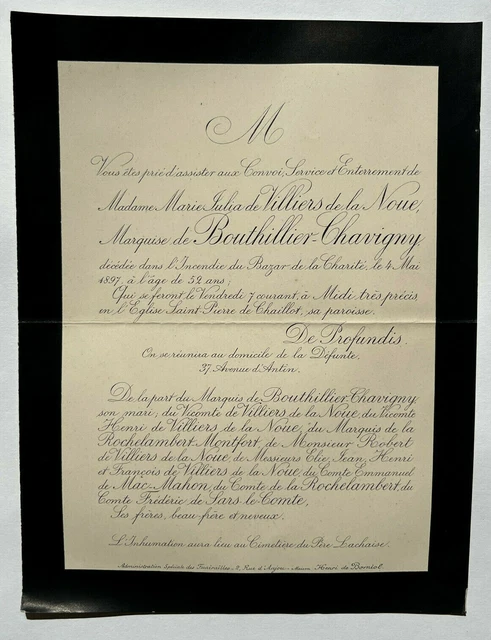 M
Vous êtes prié d'assister aux Convoi, Service et Enterrement de
Madame Marie Julia de Villiers de la Noue,
Marquise de Bouthillier-Chavigny,
décédée dans l'Incendie du Bazar de la Charité, le 4 Mai
1897, à l'âge de 52 ans;
Qui se feront le Vendredi 7 courant, à Midi très précis,
en l'Eglise Saint-Pierre de Chaillot, sa paroisse.
De Profundis.
On se réunira au domicile de la Défunte,
37, Avenue d'Antin.
De la part du Marquis de Bouthillier-Chavigny
son mari; du Vicomte de Villiers de la Noue, du Vicomte
Henri de Villiers de la Noue, du Marquis de la
Rochelambert-Montfort, de Monsieur Robert
de Villiers de la Noue, de Messieurs Elie, Jean, Henri
et François de Villiers de la Noue, du Comte Emmanuel
de Mac-Mahon, du Comte de la Rochelambert, du
Comte Frédéric de Sars-le-Comte,
Ses frères, beau-frère et neveux.
L'Inhumation aura lieu au Cimetière du Père Lachaise.
Administration Spéciale des Funérailles - 2, Rue d'Anjou - Maison Henri de Borniol